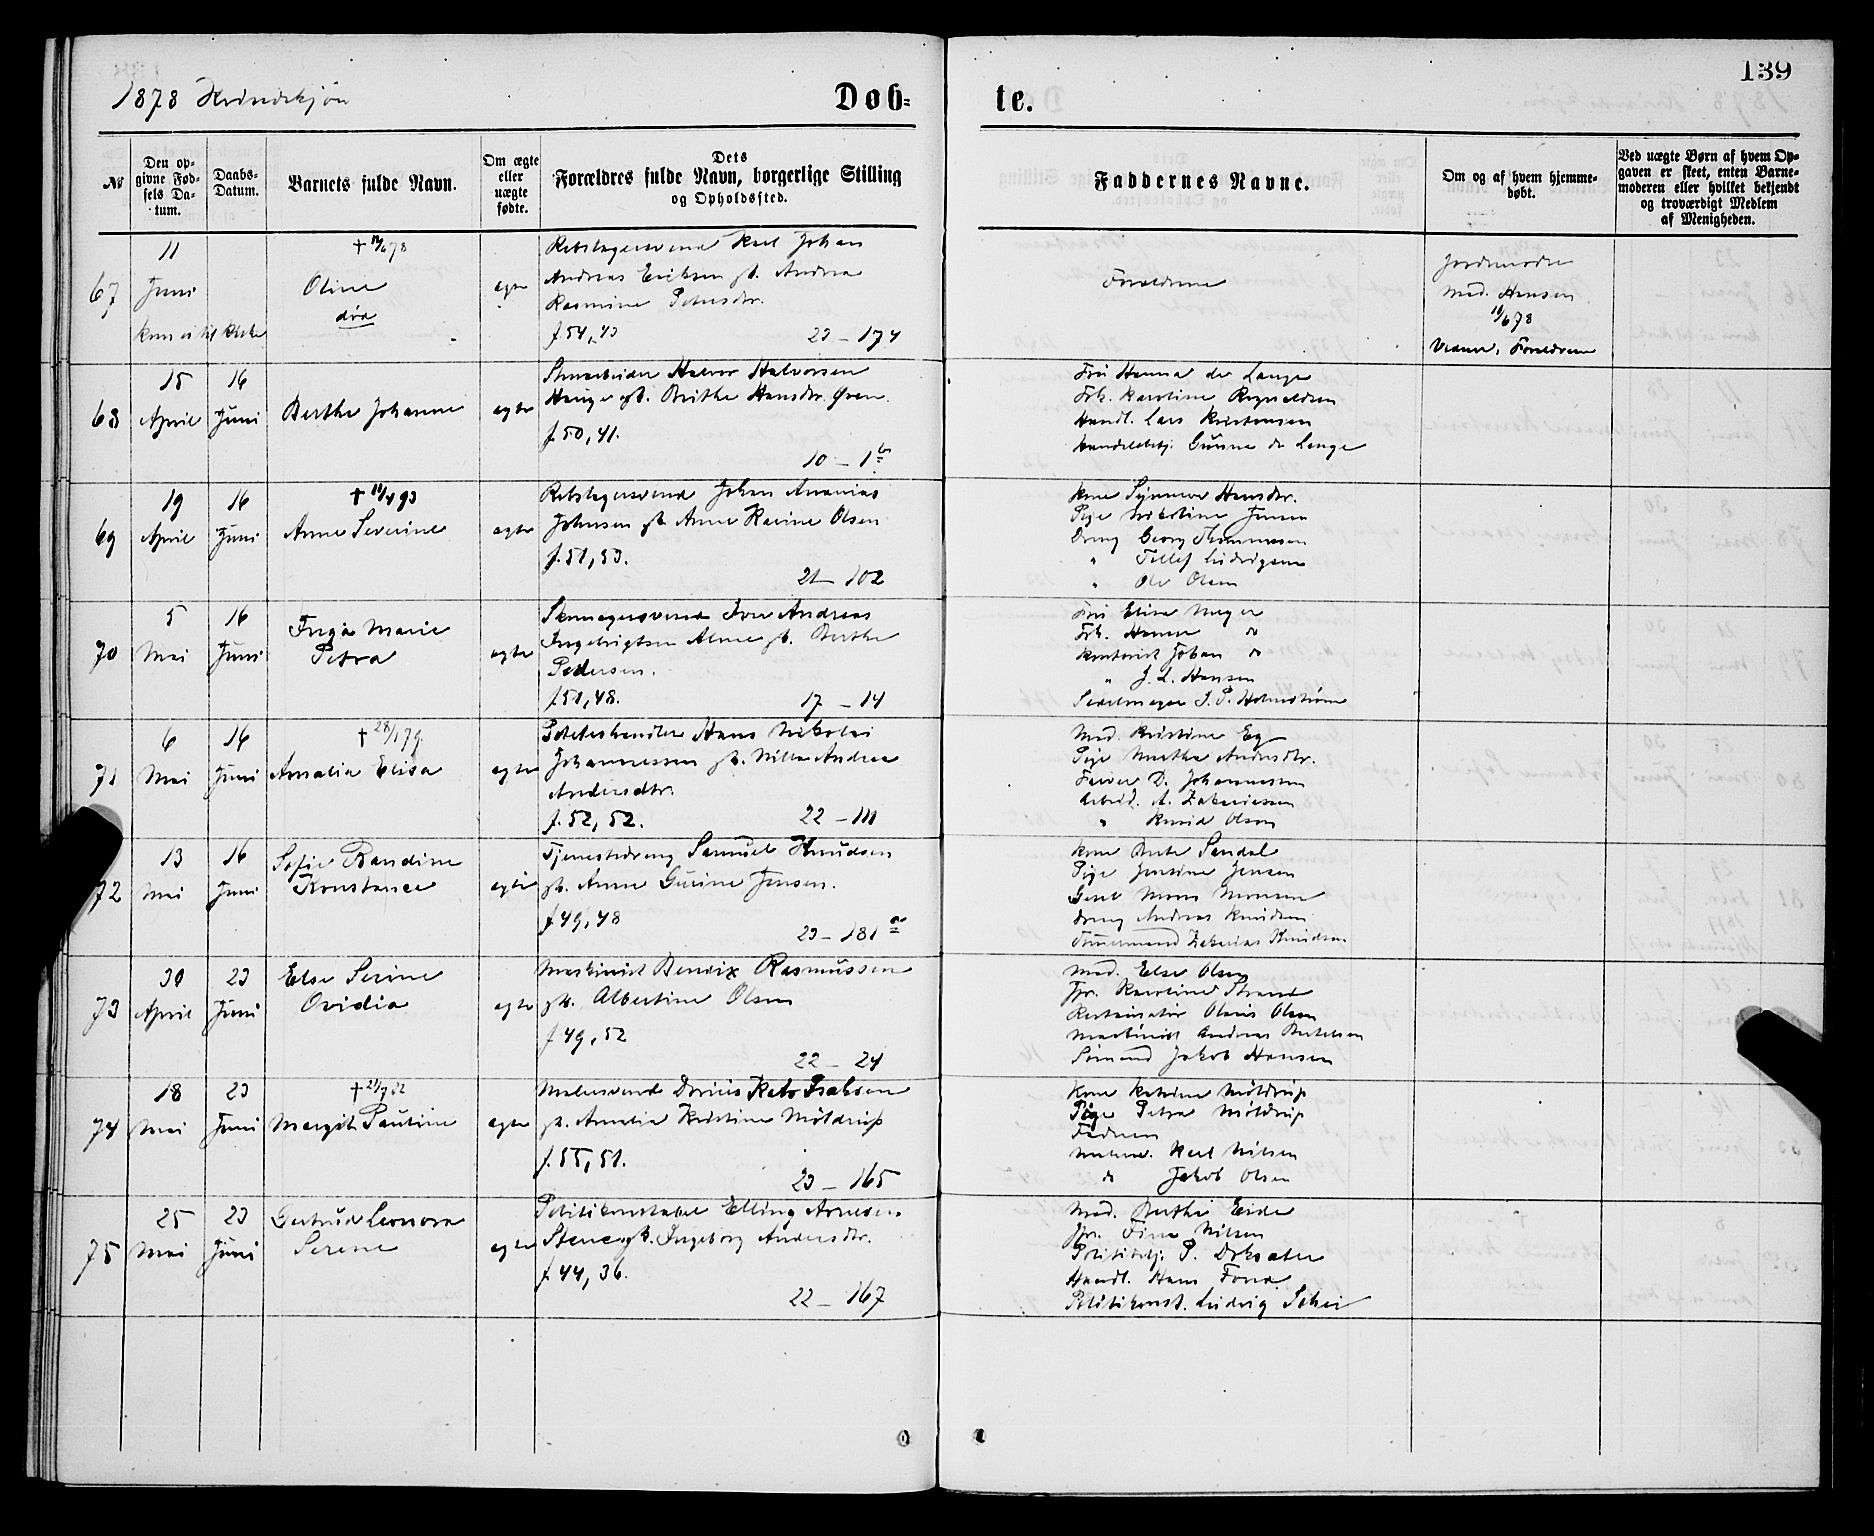 139
1878 Kvindekjøn
Døb-
te.
№
Den op-
givne Fød-
sels Da-
tum.
Daabs-
Datum.
Barnets fulde Navn.
Om ægte
eller
uægte
fødte.
Dets
Forældres fulde Navn, borgerlige Stilling
og Opholdssted.
Faddernes Navne.
Om og af hvem hjemme-
døbt.
Ved uægte Børn af hvem Op-
gaven er skeet, enten Barne-
moderen eller hvilket bekjendt
og troværdigt Medlem
af Menigheden.
67
11
Juni
kom ei til kirke
Oline
død
ægte
Rebslagersvend Karl Johan
Andreas Eriksen gb. Andrea
Rasmine Petersdtr.
f. 54, 43
23 - 174
Forældrene
Jordemoder
Mad. Hansen
11/6 78
Vidner, Forældrene
68
15
April
16
Juni
Berthe Johanne
ægte
Stenarbeider Halvor Halvorsen
Hauge gb. Brithe Hansdtr.
f. 50, 41.
10 - 1
Fru Hanna de Lange
Frk. Karoline
Handl. Lars Kristensen
de Lange
69
19
April
16
Juni
† 11/4 93
Anne Severine
ægte
Rebslagersvend Johan Ananias
Johnsen gb. Anne Karine Olsen
f. 51, 53.
21 - 102
Kone Synnove Hansdtr.
Pige Nikoline Jensen
Dreng Georg Thommesen
" Tellef Ludvigsen
" Ole Olsen
70
5
Mai
16
Juni
Inga Marie
Petra
ægte
Skomagersvend Iver Andreas
Ingebrigtsen gb. Berthe
Pedersen.
f. 51, 48.
17 - 14
Fru Elise Meyer
Frk. Hanna do
Kontorist Johan do
" J. L. Hansen
Seilmager I. P. Holmstrøm
71
6
Mai
16
Juni
† 28/1 79.
Amalia Elisa
ægte
Poteteshandler Hans Nikolai
Johannessen gb. Nilla Andrea
Andersdtr.
f. 52, 52.
22 - 111
Mad. Kristine Eg
Pige Marthe Andersdtr.
Farver D. Johannessen
Arbeid. A. Zakariassen
" Knud Olsen
72
13
Mai
16
Juni
Sofie Randine
Konstance
ægte
Tjenestedreng Samuel Knudsen
gb. Anne Gurine Jensen.
f. 49, 48
23 - 181
Kone Sandal
Pige Jensine Jensen
Mons Monsen
Dreng Andreas Knudsen
Tømmermand Zakarias Knudsen
73
30
April
23
Juni
Else Serine
Ovidia
ægte
Maskinist Bendix Rasmussen
gb. Albertine Olsen
f. 49, 52
22 - 24
Mad. Else Olsen
Jfr. Karoline Strand
Restauratør Olaus Olsen
Maskinist Andreas Bertelsen
Sømand Jakob Hansen
74
18
Mai
23
Juni
Margit Pauline
ægte
Malersvend Dorius Isaksen
gb. Amalia Kristine Møldrup
f. 55, 51.
23 - 165
Kone Katrine Møldrup
Pige Petra Møldrup
Faderen
Karl Nilsen
do Jakob Olsen
75
25
Mai
23
Juni
Gertrud Leonora
Serene
ægte
Politikonstabel Elling Arnesen
Stene gb. Ingeborg Andersdtr.
f. 44, 36.
22 - 167
Mad. Berthe Eide
Jfr. Fina Nilsen
Politibetj. P.
Handl. Hans
Politikonst. Ludvig